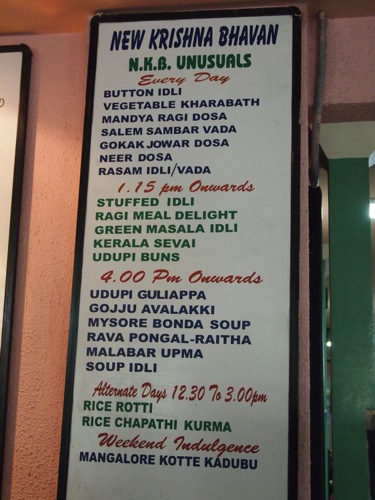 NEW KRISHNA BHAVAN
N.K.B. UNUSUALS
Every Day
BUTTON IDLI
VEGETABLE KHARABATH
MANDYA RAGI DOSA
SALEM SAMBAR VADA
GOKAK JOWAR DOSA
NEER DOSA
RASAM IDLI/VADA
1.15 pm Onwards
STUFFED IDLI
RAGI MEAL DELIGHT
GREEN MASALA IDLI
KERALA SEVAI
UDUPI BUNS
4.00 Pm Onwards
UDUPI GULIAPPA
GOJJU AVALAKKI
MYSORE BONDA SOUP
RAVA PONGAL-RAITHA
MALABAR UPMA
SOUP IDLI
Alternate Days 12.30 To 3.00pm
RICE ROTTI
RICE CHAPATHI KURMA
Weekend Indulgence
MANGALORE KOTTE KADUBU